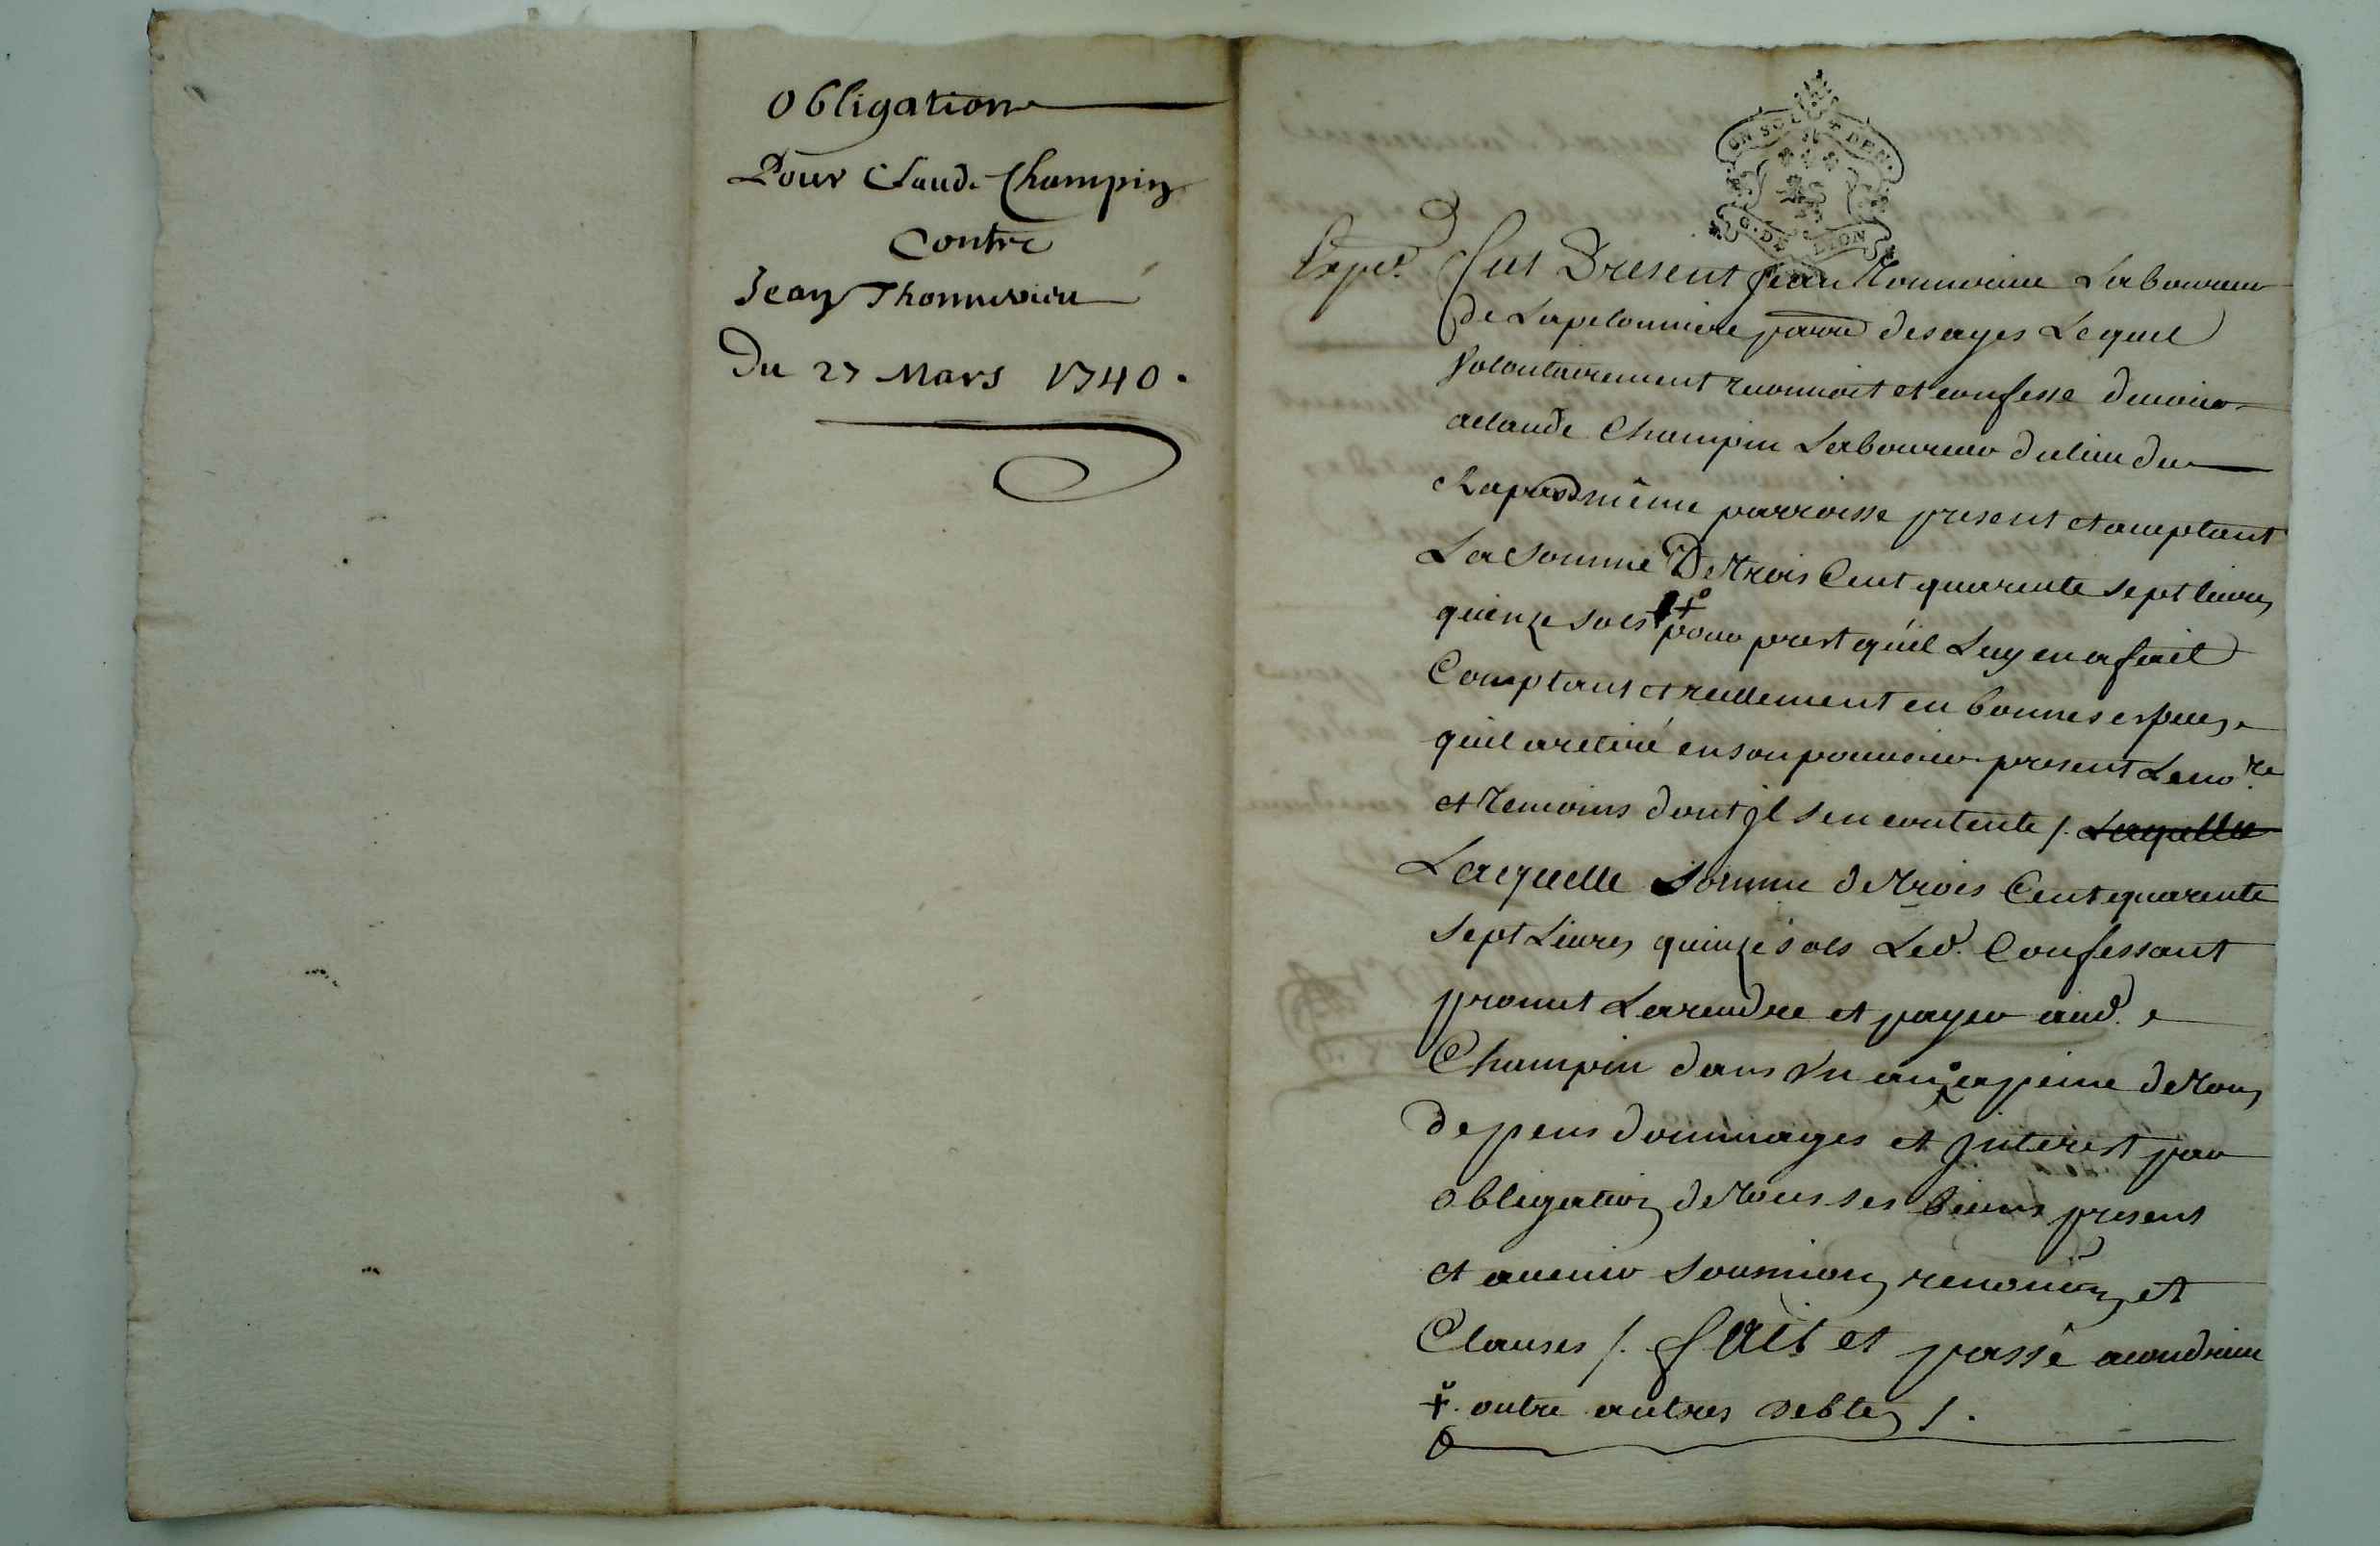 Obligation
Pour Claude Champin
Contre
Jean Thonnerieu
Du 27 Mars 1740.
UN SOL 4 DEN.
G. DE LYON
Expé.
Fut Present Jean Tonnerieu Laboureur
de Lapelonniere parre desayes Lequel
Volontairement reconnoit et confesse devoir
aclaude Champin Laboureur dulieu du
Chapas même parroisse present et acceptant
La Somme De trois Cent quarente sept livres
quinze sols ‡ pour prest qu'il Luy en a fait
Comptant et reellement en bonnes especes
quil a retiré en son pouvoir present Leno.re
et temoins dont jl s'en contente /. Laquelle
Laquelle Somme de trois Cent quarente
sept Livres quinze sols Led. Confessant
promet La rendre et payer aud.
Champin dans Un an a peine de tous
depens dommages et Jnterest par
obligation de tous ses biens present
et avenir soumion renonion et
Clauses /. fait et passé acondrieu
‡. outre autres debtes /.